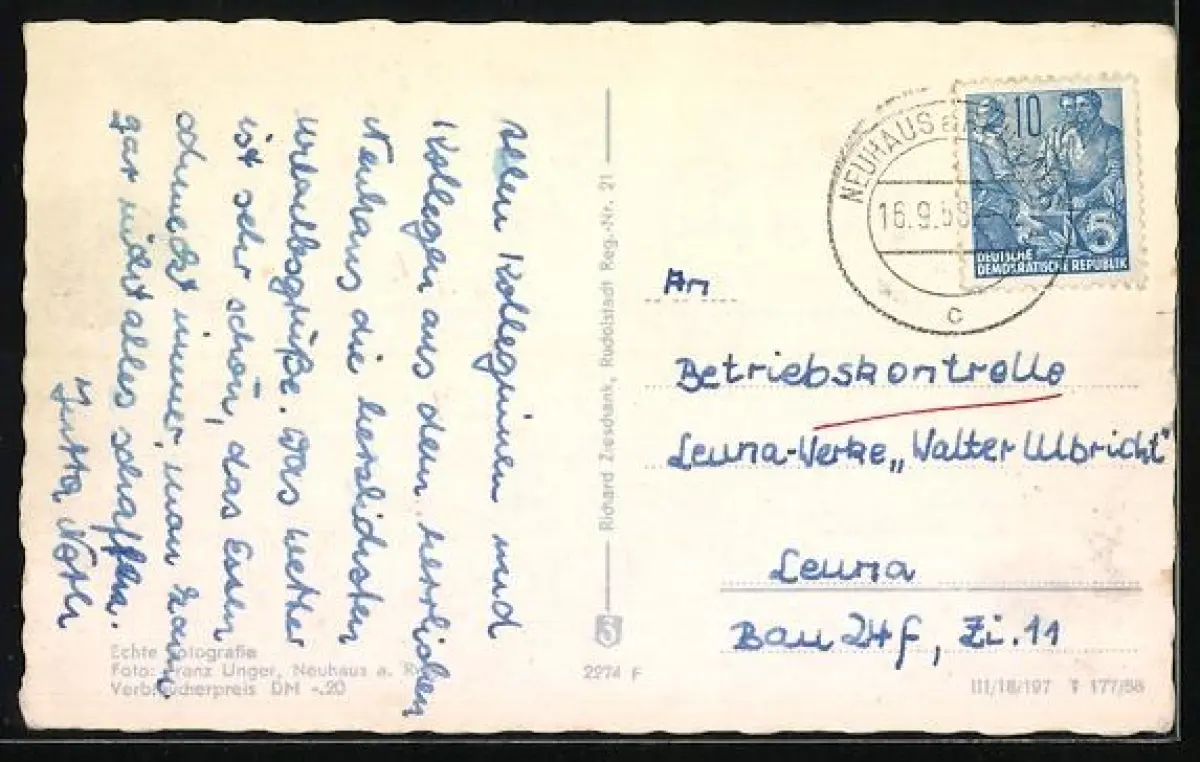 Allen Kolleginnen und
Kollegen aus dem herrlichen
Neuhaus die herzlichsten
Urlaubsgrüße. Das Wetter
ist sehr schön, das Essen
schmeckt immer, man kann
gar nicht alles schaffen.
Jutta Noth
Echte Fotografie
Foto: Franz Unger, Neuhaus a. R
Verbraucherpreis DM -.20
Richard Zieschank, Rudolstadt Reg.-Nr. 21
2274 F
NEUHAUS a.
16.9.58
c
10
5
DEUTSCHE
DEMOKRATISCHE REPUBLIK
An
Betriebskontrolle
Leuna-Werke „Walter Ulbricht"
Leuna
Bau 24f, Zi. 11
III/18/197 T 177/58